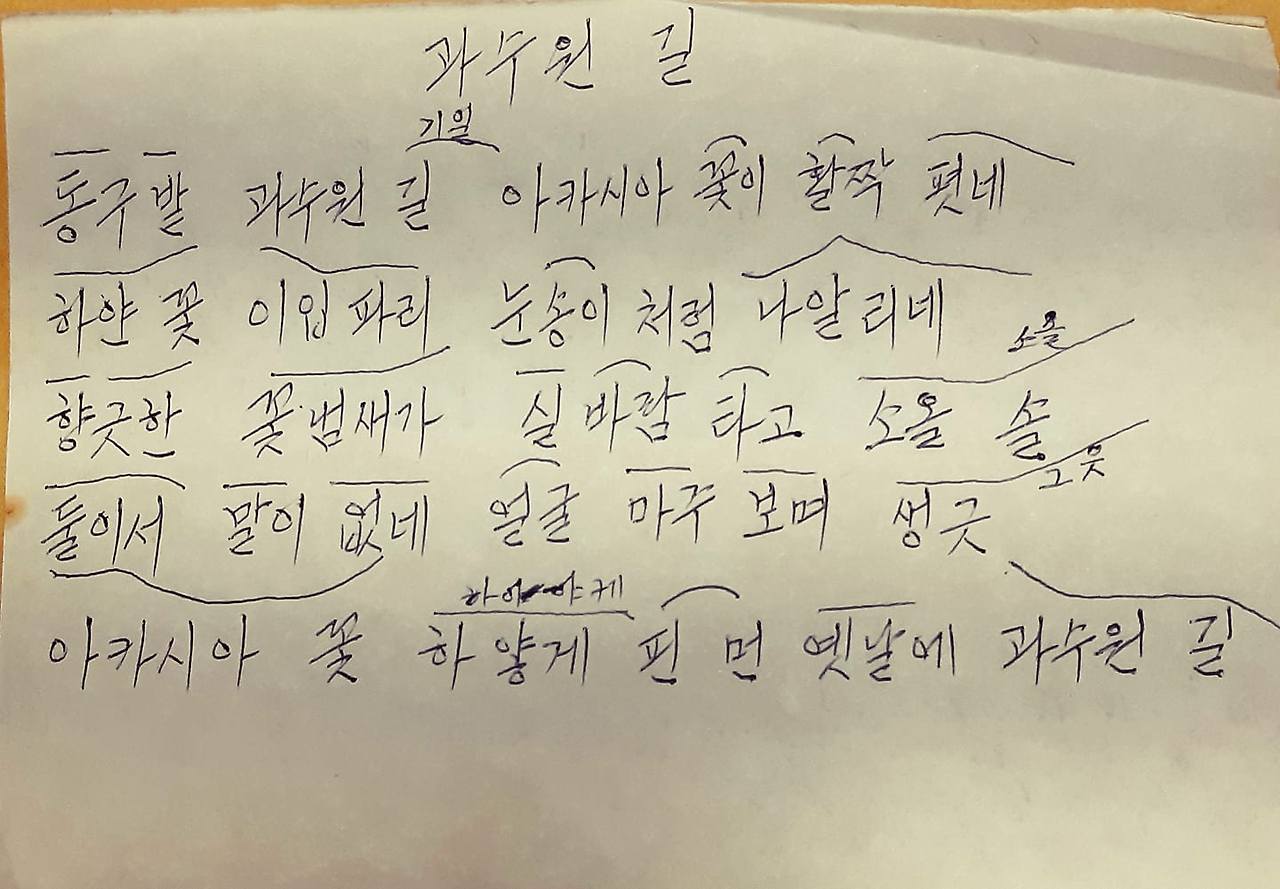 과수원 길
기일
동구밭 과수원 길 아카시아 꽃이 활짝 폇네
하얀 꽃 이입파리 눈송이 처럼 나알리네
소올
향긋한 꽃냄새가 실바람 타고 소올 솔
그읏
둘이서 말이 없네 얼굴 마주 보며 생긋
하아야케
아카시아 꽃 하얗게 핀 먼 옛날에 과수원 길